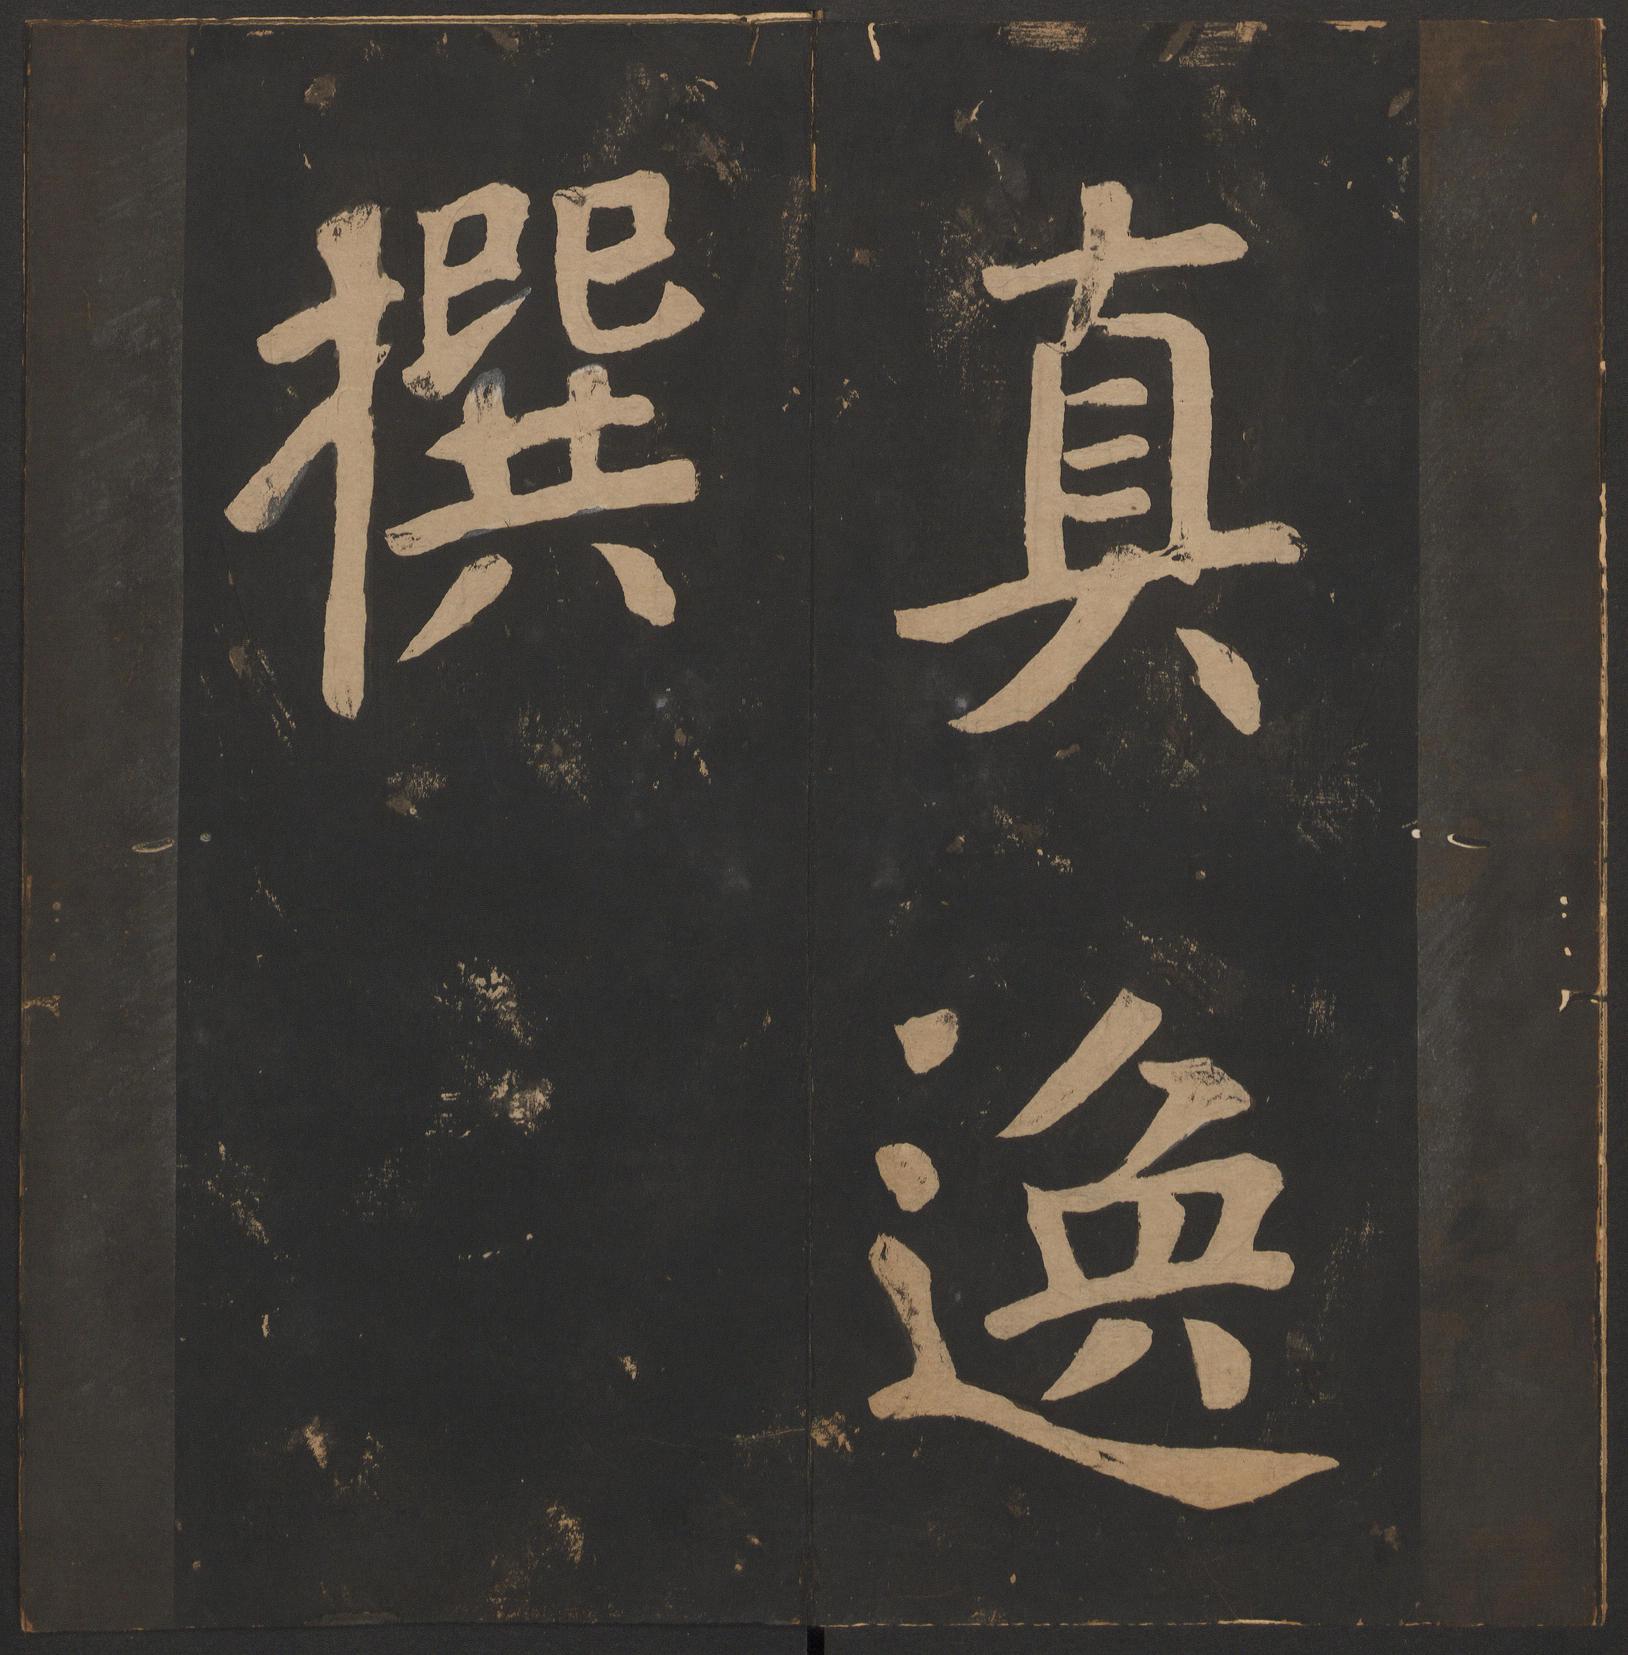 真逸
撰